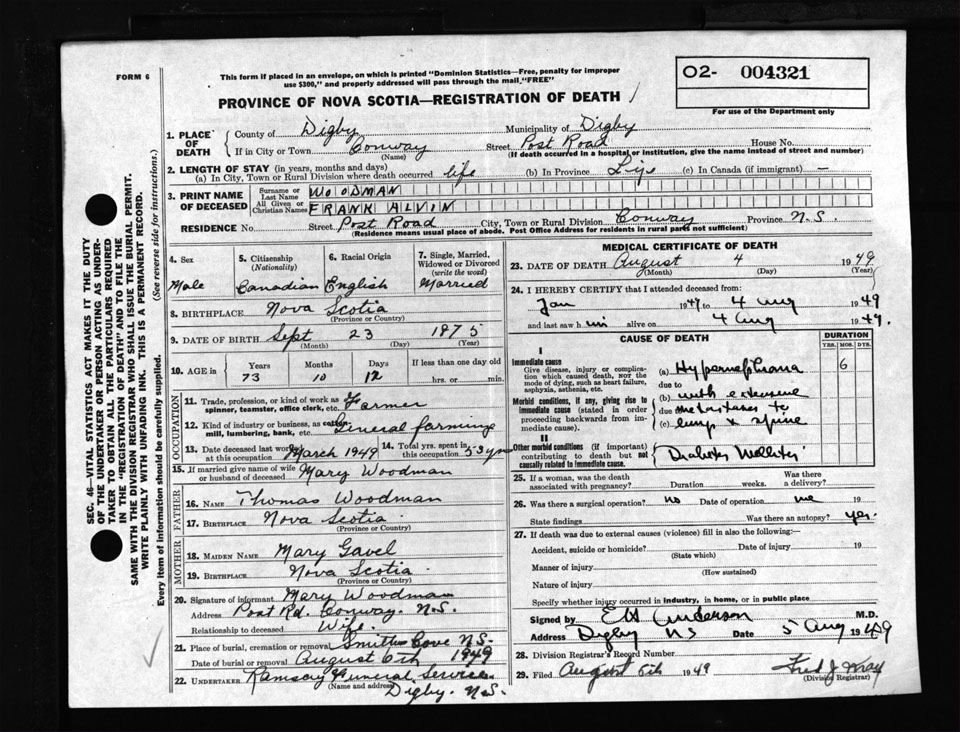 FORM 6
This form if placed in an envelope, on which is printed "Dominion Statistics—Free, penalty for improper
use $300," and properly addressed will pass through the mail "FREE"
O2- 004321
For use of the Department only
PROVINCE OF NOVA SCOTIA—REGISTRATION OF DEATH
SEC. 46—VITAL STATISTICS ACT MAKES IT THE DUTY
OF THE UNDERTAKER OR PERSON ACTING AS UNDER-
TAKER TO OBTAIN ALL THE PARTICULARS REQUIRED
IN THE "REGISTRATION OF DEATH" AND TO FILE THE
SAME WITH THE DIVISION REGISTRAR WHO SHALL ISSUE THE BURIAL PERMIT.
WRITE PLAINLY WITH UNFADING INK. THIS IS A PERMANENT RECORD.
Every item of information should be carefully supplied. (See reverse side for instructions.)
1. PLACE OF DEATH
County of Digby Municipality of Digby
If in City or Town Conway Street Post Road House No.
(Name) (If death occurred in a hospital or institution, give the name instead of street and number)
2. LENGTH OF STAY (in years, months and days)
(a) In City, Town or Rural Division where death occurred life (b) In Province Life (c) In Canada (if immigrant) —
3. PRINT NAME OF DECEASED
Surname or Last Name WOODMAN
All Given or Christian Names FRANK ALVIN
RESIDENCE No. Street Post Road City, Town or Rural Division Conway Province N.S.
(Residence means usual place of abode. Post Office Address for residents in rural parts not sufficient)
4. Sex
Male
5. Citizenship (Nationality)
Canadian
6. Racial Origin
English
7. Single, Married, Widowed or Divorced (write the word)
Married
8. BIRTHPLACE Nova Scotia
(Province or Country)
9. DATE OF BIRTH Sept 23 1875
(Month) (Day) (Year)
10. AGE in Years Months Days If less than one day old
73 10 12 hrs. or min.
OCCUPATION
11. Trade, profession, or kind of work as spinner, teamster, office clerk, etc. Farmer
12. Kind of industry or business, as cotton-mill, lumbering, bank, etc. General farming
13. Date deceased last worked at this occupation March 1949
14. Total yrs. spent in this occupation 53 yrs
15. If married give name of wife or husband of deceased Mary Woodman
FATHER
16. NAME Thomas Woodman
17. BIRTHPLACE Nova Scotia
(Province or Country)
MOTHER
18. MAIDEN NAME Mary Gavel
19. BIRTHPLACE Nova Scotia
(Province or Country)
20. Signature of informant Mary Woodman
Address Post Rd. Conway. N.S.
Relationship to deceased Wife.
21. Place of burial, cremation or removal Smith Cove N.S.
Date of burial or removal August 6th 1949
22. UNDERTAKER Ramsay Funeral Service
(Name and address) Digby. N.S.
MEDICAL CERTIFICATE OF DEATH
23. DATE OF DEATH August 4 1949
(Month) (Day) (Year)
24. I HEREBY CERTIFY that I attended deceased from:
Jan 1949 to 4 Aug 1949
and last saw him alive on 4 Aug 1949.
CAUSE OF DEATH
DURATION
YRS. MOS. DYS.
I
Immediate cause
Give disease, injury or complication which caused death, not the mode of dying, such as heart failure, asphyxia, asthenia, etc.
(a) Hypernephroma 6
due to
Morbid conditions, if any, giving rise to immediate cause (stated in order proceeding backwards from immediate cause).
(b) with extensive
due metastases to
(c) lung & spine
II
Other morbid conditions (if important) contributing to death but not causally related to immediate cause.
Diabetes Mellitus
25. If a woman, was the death associated with pregnancy? Duration weeks. Was there a delivery?
26. Was there a surgical operation? no Date of operation 19
State findings Was there an autopsy? yes.
27. If death was due to external causes (violence) fill in also the following:—
Accident, suicide or homicide? Date of injury 19
(State which)
Manner of injury
(How sustained)
Nature of injury
Specify whether injury occurred in industry, in home, or in public place
Signed by Anderson M.D.
Address Digby NS Date 5 Aug 1949
28. Division Registrar's Record Number
29. Filed August 6th 1949 Fred J.
(Division Registrar)